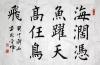 海闊憑
魚躍天
高任鳥
飛